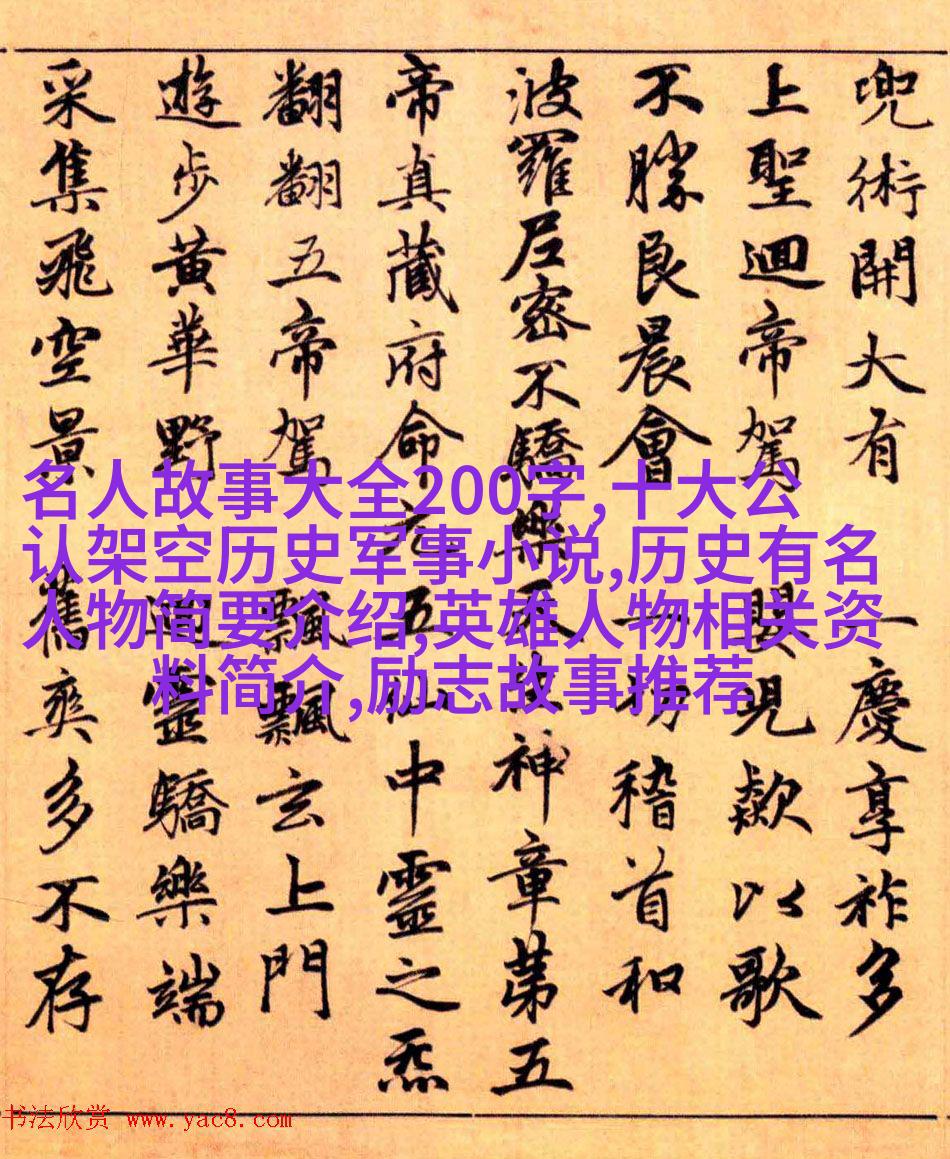 兜術開大有一慶享祚多
上聖迴帝駕見歘以歌
不勝良晨會一切稽首和
波羅尼密不驕樂天神章第五
帝真藏府命元五仙中靈之炁
翻翻五帝駕飄飄玄上門
遊步黃華野迴靈驕樂端
采集飛空景舊爽多不存
名人故事大全200字,十大公
认架空历史军事小说,历史有名
人物简要介绍,英雄人物相关资
料简介,励志故事推荐
书法欣赏 www.yac8.com